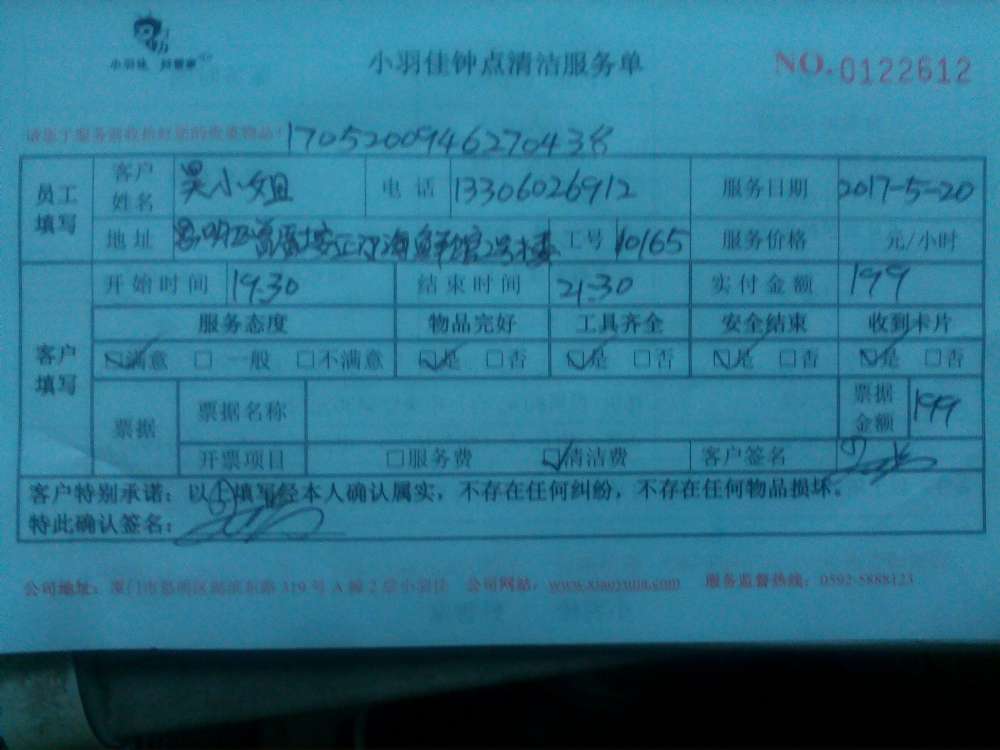 小羽佳 好管家
小羽佳钟点清洁服务单
NO.0122612
请您于服务前收拾好您的贵重物品!
员工填写 客户姓名 吴小姐 电话 13306026912 服务日期 2017-5-20
地址 工号 10165 服务价格 元/小时
客户填写 开始时间 19:30 结束时间 21:30 实付金额 199
服务态度 物品完好 工具齐全 安全结束 收到卡片
☑满意 □一般 □不满意 ☑是 □否 ☑是 □否 ☑是 □否 ☑是 □否
票据 票据名称 票据金额 199
开票项目 □服务费 ☑清洁费 客户签名
客户特别承诺:以上填写经本人确认属实,不存在任何纠纷,不存在任何物品损坏。
特此确认签名:
公司地址:厦门市思明区湖滨东路 319 号 A 幢 2 层小羽佳 公司网站:www.xiaoyujia.com 服务监督热线:0592-5888123